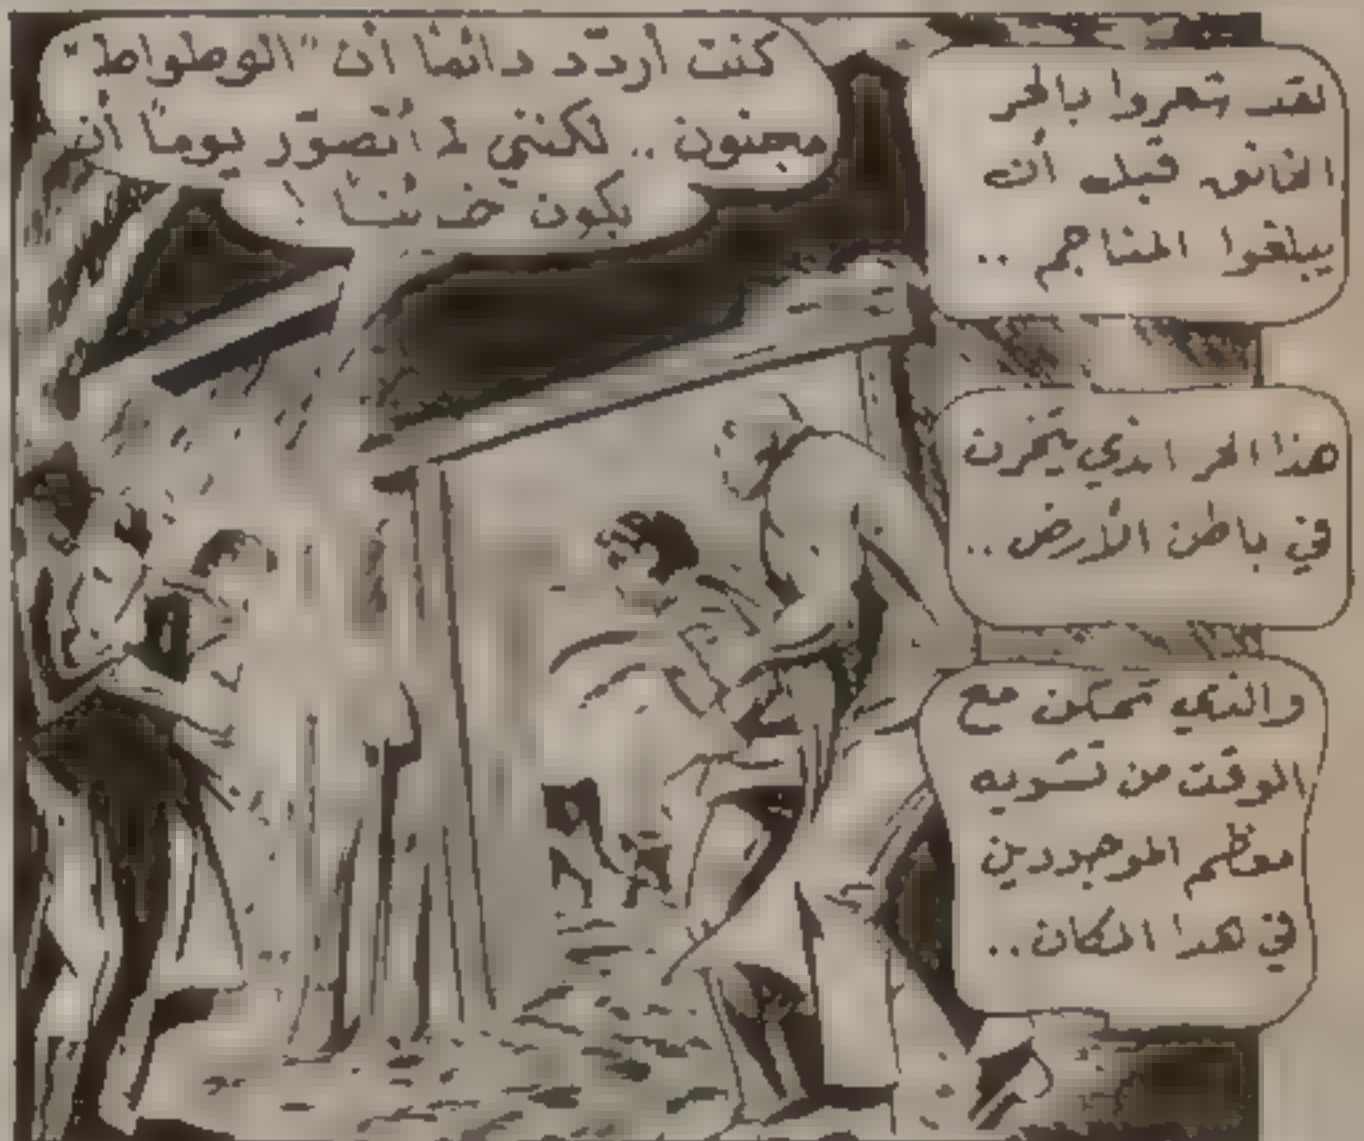 لقد شعروا بالحر
الخانق قبل أن
يبلغوا المناجم ..
هذا الحر الذي يختزن
في باطن الأرض ..
والذي تمكن مع
الوقت من تشويه
معظم الموجودين
في هذا المكان ..
كنت أردّد دائمًا أن "الوطواط"
مجنون .. لكنني لم أتصوّر يومًا أن
يكون خبيثًا !